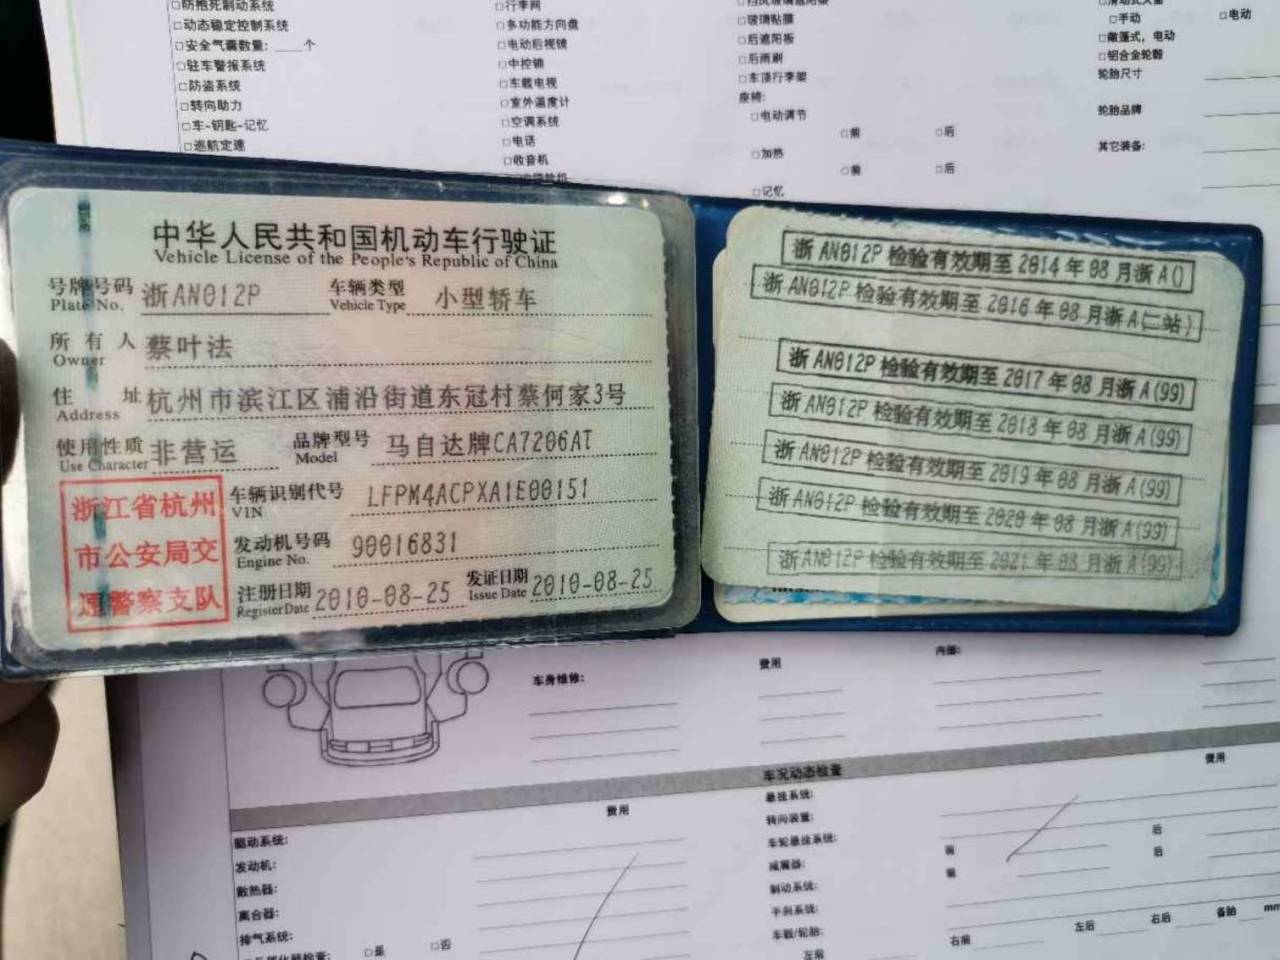 □防抱死制动系统
□动态稳定控制系统
□安全气囊数量:____个
□驻车警报系统
□防盗系统
□转向助力
□车-钥匙-记忆
□巡航定速
□行李网
□多功能方向盘
□电动后视镜
□中控锁
□车载电视
□室外温度计
□空调系统
□电话
□收音机
□玻璃贴膜
□后遮阳板
□后雨刷
□车顶行李架
座椅:
□电动调节
□前 □后
□加热
□前 □后
□记忆
□手动 □电动
□敞篷式，电动
□铝合金轮毂
轮胎尺寸
轮胎品牌
其它装备:
中华人民共和国机动车行驶证
Vehicle License of the People's Republic of China
号牌号码 浙AN012P 车辆类型 小型轿车
Plate No. Vehicle Type
所有人 蔡叶法
Owner
住址 杭州市滨江区浦沿街道东冠村蔡何家3号
Address
使用性质 非营运 品牌型号 马自达牌CA7206AT
Use Character Model
浙江省杭州
市公安局交
通警察支队
车辆识别代号 LFPM4ACPXA1E00151
VIN
发动机号码 90016831
Engine No.
注册日期 2010-08-25 发证日期 2010-08-25
Register Date Issue Date
浙AN012P 检验有效期至 2014 年 08 月浙A()
浙AN012P 检验有效期至 2016 年 08 月浙A(二站)
浙AN012P 检验有效期至 2017 年 08 月浙A(99)
浙AN012P 检验有效期至 2018 年 08 月浙A(99)
浙AN012P 检验有效期至 2019 年 08 月浙A(99)
浙AN012P 检验有效期至 2020 年 08 月浙A(99)
浙AN012P 检验有效期至 2021 年 08 月浙A(99)
车身维修: 费用 内部:
车况动态检查
费用 费用
驱动系统:
发动机:
散热器:
离合器:
排气系统:
□是 □否
悬挂系统:
转向装置:
车轮悬挂系统: 前 后
减震器: 前 后
制动系统:
手刹系统:
车载/轮胎:
左前 右前 左后 右后 备胎 mm